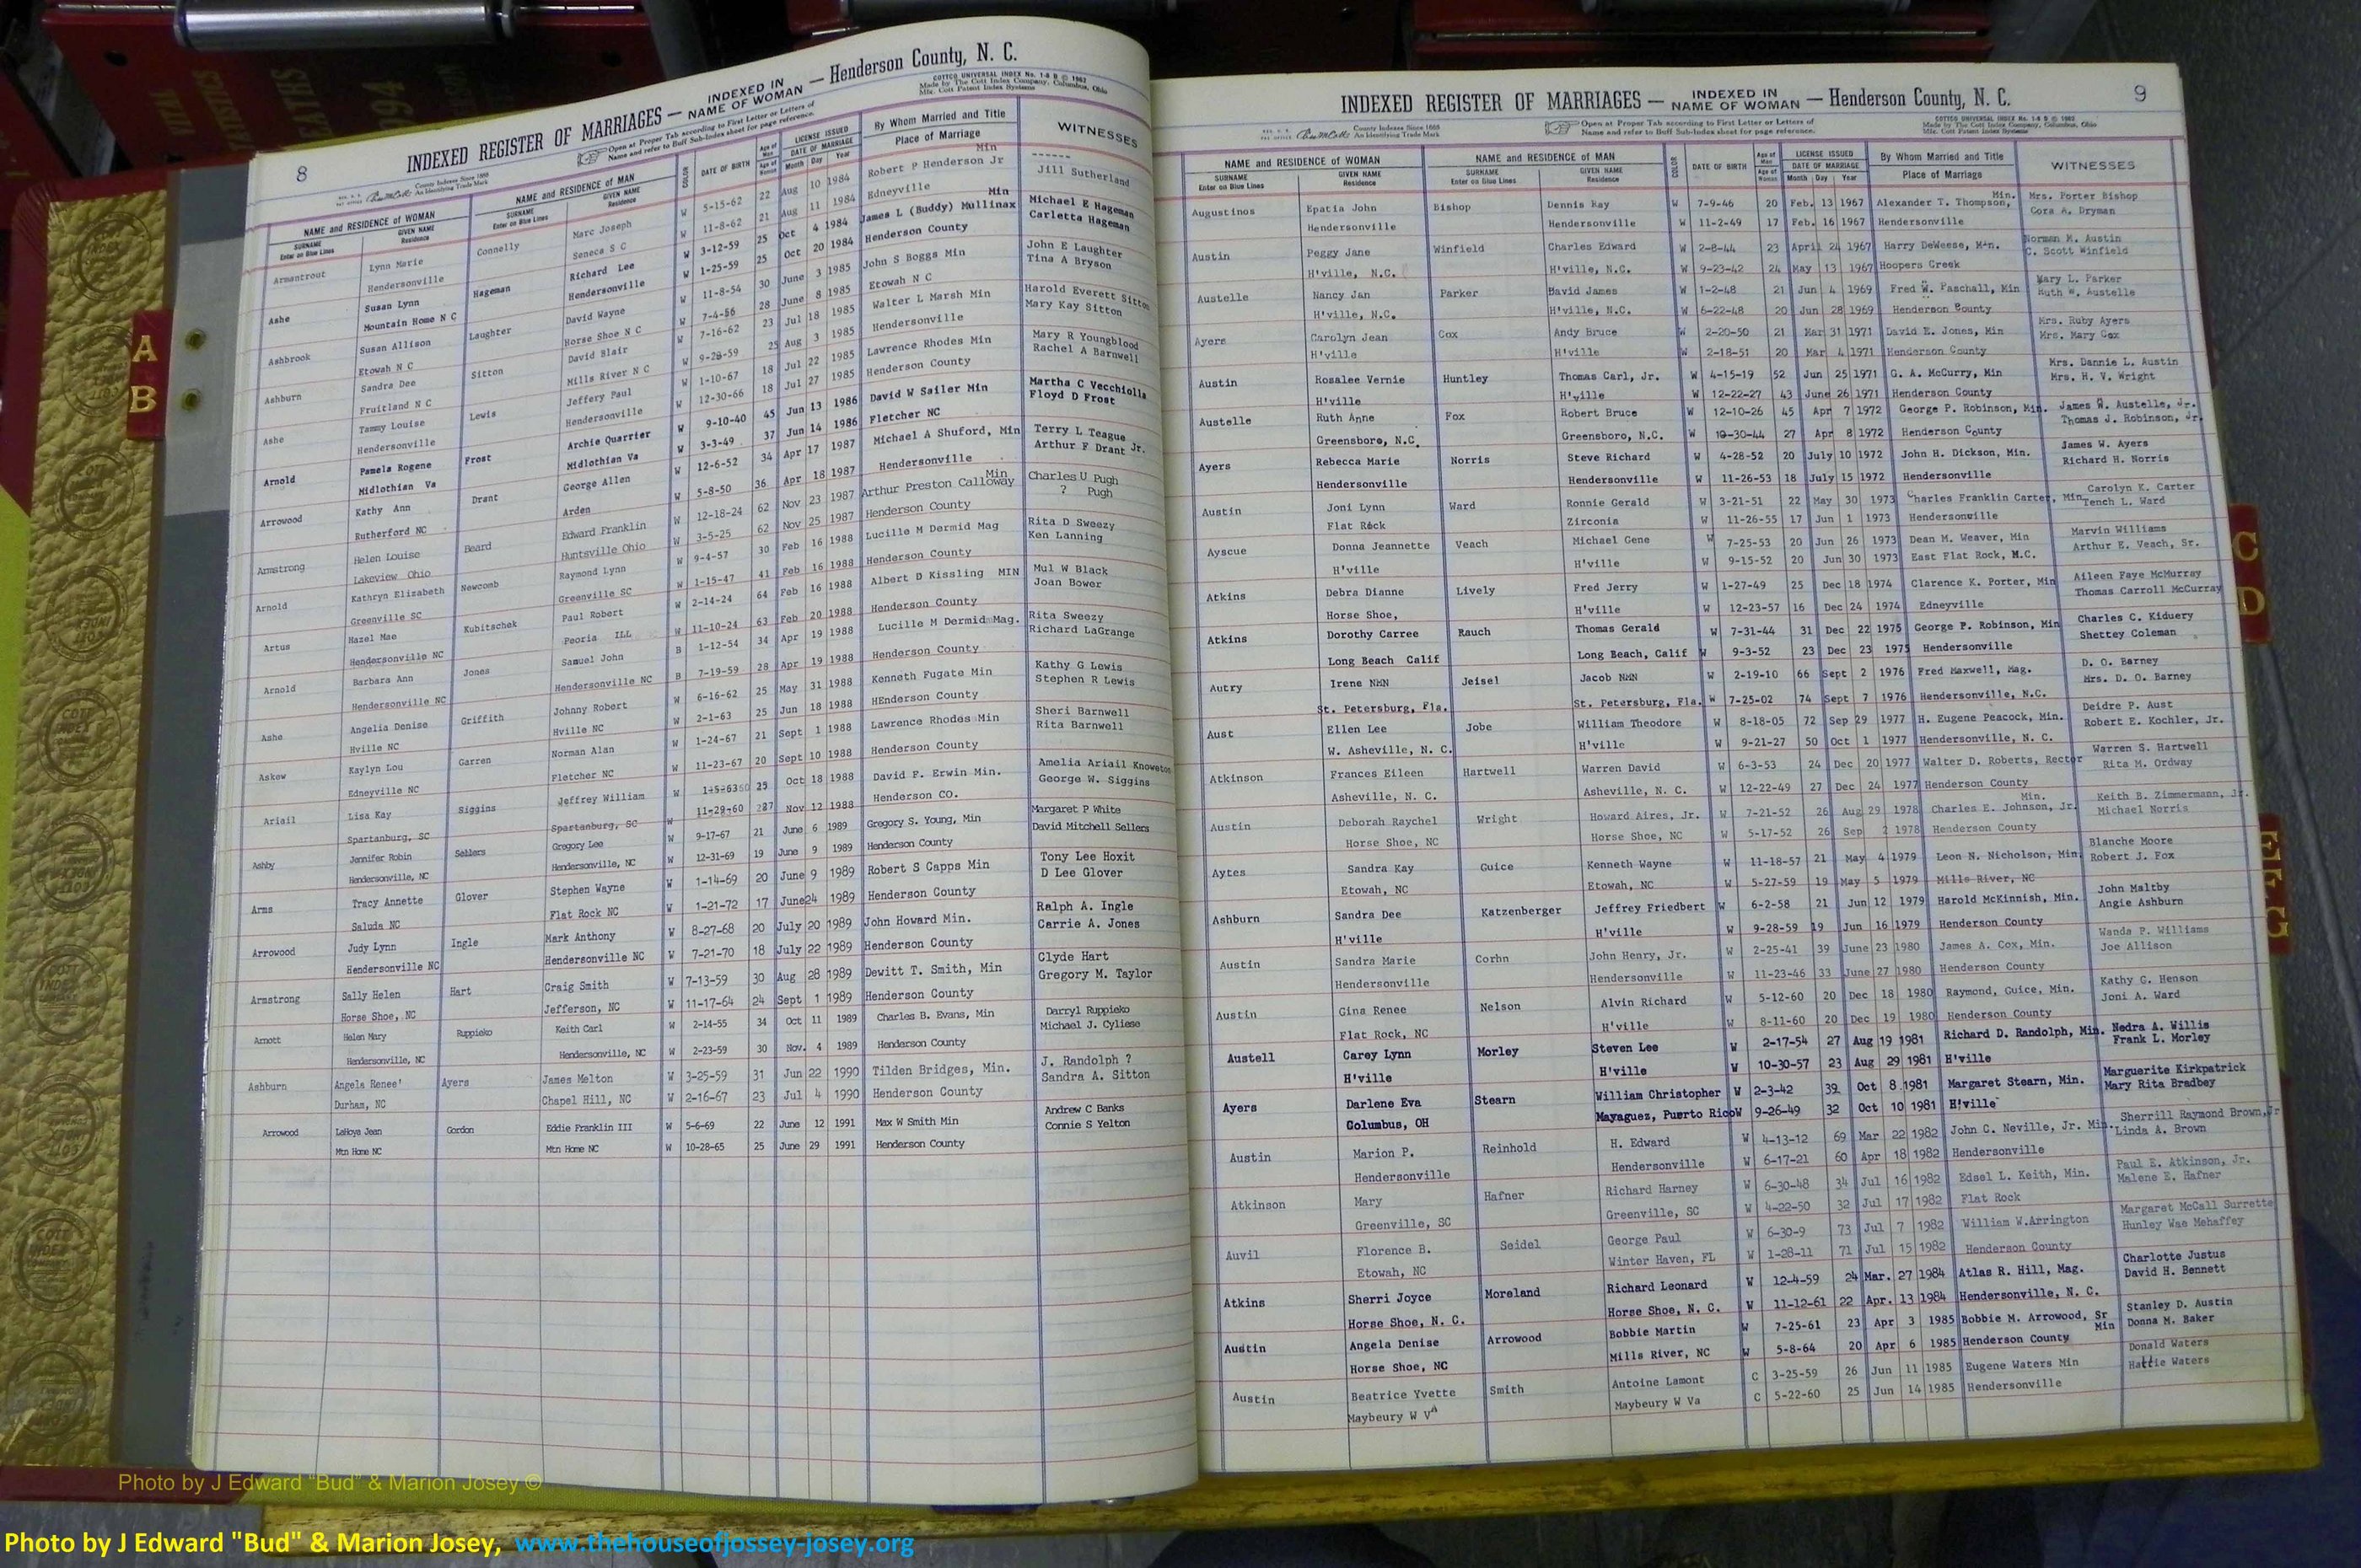 8
INDEXED REGISTER OF MARRIAGES — INDEXED IN NAME OF WOMAN — Henderson County, N. C.
COTTCO UNIVERSAL INDEX No. 1-8 B © 1962
Made by The Cott Index Company, Columbus, Ohio
Mfr. Cott Patent Index Systems
County Indexes Since 1888
An Identifying Trade Mark
Open at Proper Tab according to First Letter or Letters of
Name and refer to Buff Sub-Index sheet for page reference.
NAME and RESIDENCE of WOMAN NAME and RESIDENCE of MAN COLOR DATE OF BIRTH Age of Man Age of Woman LICENSE ISSUED DATE OF MARRIAGE By Whom Married and Title Place of Marriage WITNESSES
SURNAME Enter on Blue Lines GIVEN NAME Residence SURNAME Enter on Blue Lines GIVEN NAME Residence Month Day Year
Armantrout Lynn Marie Connelly Marc Joseph W 5-15-62 22 Aug 10 1984 Robert P Henderson Jr Min ------
Hendersonville Seneca S C W 11-8-62 21 Aug 11 1984 Edneyville Jill Sutherland
Ashe Susan Lynn Hageman Richard Lee W 3-12-59 25 Oct 4 1984 James L (Buddy) Mullinax Min Michael E Hageman
Mountain Home N C Hendersonville W 1-25-59 25 Oct 20 1984 Henderson County Carletta Hageman
Ashbrook Susan Allison Laughter David Wayne W 11-8-54 30 June 3 1985 John S Boggs Min John E Laughter
Etowah N C Horse Shoe N C W 7-4-56 28 June 8 1985 Etowah N C Tina A Bryson
Ashburn Sandra Dee Sitton David Blair W 7-16-62 23 Jul 18 1985 Walter L Marsh Min Harold Everett Sitton
Fruitland N C Mills River N C W 9-28-59 25 Aug 3 1985 Hendersonville Mary Kay Sitton
Ashe Tammy Louise Lewis Jeffery Paul W 1-10-67 18 Jul 22 1985 Lawrence Rhodes Min Mary R Youngblood
Hendersonville Hendersonville W 12-30-66 18 Jul 27 1985 Henderson County Rachel A Barnwell
Arnold Pamela Rogene Frost Archie Quarrier W 9-10-40 45 Jun 13 1986 David W Sailer Min Martha C Vecchiolla
Midlothian Va Midlothian Va W 3-3-49 37 Jun 14 1986 Fletcher NC Floyd D Frost
Arrowood Kathy Ann Drant George Allen W 12-6-52 34 Apr 17 1987 Michael A Shuford, Min Terry L Teague
Rutherford NC Arden W 5-8-50 36 Apr 18 1987 Hendersonville Arthur F Drant Jr.
Armstrong Helen Louise Beard Edward Franklin W 12-18-24 62 Nov 23 1987 Arthur Preston Calloway Min Charles U Pugh
Lakeview Ohio Huntsville Ohio W 3-5-25 62 Nov 25 1987 Henderson County ? Pugh
Arnold Kathryn Elizabeth Newcomb Raymond Lynn W 9-4-57 30 Feb 16 1988 Lucille M Dermid Mag Rita D Sweezy
Greenville SC Greenville SC W 1-15-47 41 Feb 16 1988 Henderson County Ken Lanning
Artus Hazel Mae Kubitschek Paul Robert W 2-14-24 64 Feb 16 1988 Albert D Kissling MIN Mul W Black
Hendersonville NC Peoria ILL W 11-10-24 63 Feb 20 1988 Henderson County Joan Bower
Arnold Barbara Ann Jones Samuel John B 1-12-54 34 Apr 19 1988 Lucille M Dermid Mag. Rita Sweezy
Hendersonville NC Hendersonville NC B 7-19-59 28 Apr 19 1988 Henderson County Richard LaGrange
Ashe Angelia Denise Griffith Johnny Robert W 6-16-62 25 May 31 1988 Kenneth Fugate Min Kathy G Lewis
Hville NC Hville NC W 2-1-63 25 Jun 18 1988 HEnderson County Stephen R Lewis
Askew Kaylyn Lou Garren Norman Alan W 1-24-67 21 Sept 1 1988 Lawrence Rhodes Min Sheri Barnwell
Edneyville NC Fletcher NC W 11-23-67 20 Sept 10 1988 Henderson County Rita Barnwell
Ariail Lisa Kay Siggins Jeffrey William W 25 Oct 18 1988 David F. Erwin Min. Amelia Ariail Knoweton
Spartanburg, SC Spartanburg, SC W 11-29-60 Nov 12 1988 Henderson CO. George W. Siggins
Ashby Jennifer Robin Sellers Gregory Lee W 9-17-67 21 June 6 1989 Gregory S. Young, Min Margaret P White
Hendersonville, NC Hendersonville, NC W 12-31-69 19 June 9 1989 Henderson County David Mitchell Sellers
Arms Tracy Annette Glover Stephen Wayne W 1-14-69 20 June 9 1989 Robert S Capps Min Tony Lee Hoxit
Saluda NC Flat Rock NC W 1-21-72 17 June24 1989 Henderson County D Lee Glover
Arrowood Judy Lynn Ingle Mark Anthony W 8-27-68 20 July 20 1989 John Howard Min. Ralph A. Ingle
Hendersonville NC Hendersonville NC W 7-21-70 18 July 22 1989 Henderson County Carrie A. Jones
Armstrong Sally Helen Hart Craig Smith W 7-13-59 30 Aug 28 1989 Dewitt T. Smith, Min Clyde Hart
Horse Shoe, NC Jefferson, NC W 11-17-64 24 Sept 1 1989 Henderson County Gregory M. Taylor
Arnott Helen Mary Ruppieko Keith Carl W 2-14-55 34 Oct 11 1989 Charles B. Evans, Min Darryl Ruppieko
Hendersonville, NC Hendersonville, NC W 2-23-59 30 Nov. 4 1989 Henderson County Michael J. Cyliese
Ashburn Angela Renee' Ayers James Melton W 3-25-59 31 Jun 22 1990 Tilden Bridges, Min. J. Randolph ?
Durham, NC Chapel Hill, NC W 2-16-67 23 Jul 4 1990 Henderson County Sandra A. Sitton
Arrowood LaHoye Jean Gordon Eddie Franklin III W 5-6-69 22 June 12 1991 Max W Smith Min Andrew C Banks
Mtn Home NC Mtn Home NC W 10-28-65 25 June 29 1991 Henderson County Connie S Yelton
9
INDEXED REGISTER OF MARRIAGES — INDEXED IN NAME OF WOMAN — Henderson County, N. C.
County Indexes Since 1888
An Identifying Trade Mark
Open at Proper Tab according to First Letter or Letters of
Name and refer to Buff Sub-Index sheet for page reference.
COTTCO UNIVERSAL INDEX No. 1-8 B © 1962
Made by The Cott Index Company, Columbus, Ohio
Mfr. Cott Patent Index Systems
NAME and RESIDENCE OF WOMAN NAME and RESIDENCE OF MAN COLOR DATE OF BIRTH Age of Man Age of Woman LICENSE ISSUED DATE OF MARRIAGE By Whom Married and Title Place of Marriage WITNESSES
SURNAME Enter on Blue Lines GIVEN NAME Residence SURNAME Enter on Blue Lines GIVEN NAME Residence Month Day Year
Augustinos Epatia John Bishop Dennis Ray W 7-9-46 20 Feb. 13 1967 Alexander T. Thompson, Min. Mrs. Porter Bishop
Hendersonville Hendersonville W 11-2-49 17 Feb. 16 1967 Hendersonville Cora A. Dryman
Austin Peggy Jane Winfield Charles Edward W 2-8-44 23 April 24 1967 Harry DeWeese, Min. Norman M. Austin
H'ville, N.C. H'ville, N.C. W 9-23-42 24 May 13 1967 Hoopers Creek C. Scott Winfield
Austelle Nancy Jan Parker David James W 1-2-48 21 Jun 4 1969 Fred W. Paschall, Min Mary L. Parker
H'ville, N.C. H'ville, N.C. W 6-22-48 20 Jun 28 1969 Henderson County Ruth W. Austelle
Ayers Carolyn Jean Cox Andy Bruce W 2-20-50 21 Mar 31 1971 David E. Jones, Min Mrs. Ruby Ayers
H'ville H'ville W 2-18-51 20 Mar 4 1971 Henderson County Mrs. Mary Cox
Austin Rosalee Vernie Huntley Thomas Carl, Jr. W 4-15-19 52 Jun 25 1971 G. A. McCurry, Min Mrs. Dannie L. Austin
H'ville H'ville W 12-22-27 43 June 26 1971 Henderson County Mrs. H. V. Wright
Austelle Ruth Anne Fox Robert Bruce W 12-10-26 45 Apr 7 1972 George P. Robinson, Min. James W. Austelle, Jr.
Greensboro, N.C. Greensboro, N.C. W 10-30-44 27 Apr 8 1972 Henderson County Thomas J. Robinson, Jr.
Ayers Rebecca Marie Norris Steve Richard W 4-28-52 20 July 10 1972 John H. Dickson, Min. James W. Ayers
Hendersonville Hendersonville W 11-26-53 18 July 15 1972 Hendersonville Richard H. Norris
Austin Joni Lynn Ward Ronnie Gerald W 3-21-51 22 May 30 1973 Charles Franklin Carter, Min Carolyn K. Carter
Flat Rock Zirconia W 11-26-55 17 Jun 1 1973 Hendersonville Tench L. Ward
Ayscue Donna Jeannette Veach Michael Gene W 7-25-53 20 Jun 26 1973 Dean M. Weaver, Min Marvin Williams
H'ville H'ville W 9-15-52 20 Jun 30 1973 East Flat Rock, N.C. Arthur E. Veach, Sr.
Atkins Debra Dianne Lively Fred Jerry W 1-27-49 25 Dec 18 1974 Clarence K. Porter, Min Aileen Faye McMurray
Horse Shoe, H'ville W 12-23-57 16 Dec 24 1974 Edneyville Thomas Carroll McCurray
Atkins Dorothy Carree Rauch Thomas Gerald W 7-31-44 31 Dec 22 1975 George P. Robinson, Min Charles C. Kiduery
Long Beach Calif Long Beach, Calif W 9-3-52 23 Dec 23 1975 Hendersonville Shettey Coleman
Autry Irene NMN Jeisel Jacob NMN W 2-19-10 66 Sept 2 1976 Fred Maxwell, Mag. D. O. Barney
St. Petersburg, Fla. St. Petersburg, Fla. W 7-25-02 74 Sept 7 1976 Hendersonville, N.C. Mrs. D. O. Barney
Aust Ellen Lee Jobe William Theodore W 8-18-05 72 Sep 29 1977 H. Eugene Peacock, Min. Deidre P. Aust
W. Asheville, N. C. H'ville W 9-21-27 50 Oct 1 1977 Hendersonville, N. C. Robert E. Kochler, Jr.
Atkinson Frances Eileen Hartwell Warren David W 6-3-53 24 Dec 20 1977 Walter D. Roberts, Rector Warren S. Hartwell
Asheville, N. C. Asheville, N. C. W 12-22-49 27 Dec 24 1977 Henderson County Rita M. Ordway
Austin Deborah Raychel Wright Howard Aires, Jr. W 7-21-52 26 Aug 29 1978 Charles E. Johnson, Jr. Min. Keith B. Zimmermann, Jr.
Horse Shoe, NC Horse Shoe, NC W 5-17-52 26 Sep 2 1978 Henderson County Michael Norris
Aytes Sandra Kay Guice Kenneth Wayne W 11-18-57 21 May 4 1979 Leon N. Nicholson, Min Blanche Moore
Etowah, NC Etowah, NC W 5-27-59 19 May 5 1979 Mills River, NC Robert J. Fox
Ashburn Sandra Dee Katzenberger Jeffrey Friedbert W 6-2-58 21 Jun 12 1979 Harold McKinnish, Min. John Maltby
H'ville H'ville W 9-28-59 19 Jun 16 1979 Henderson County Angie Ashburn
Austin Sandra Marie Corhn John Henry, Jr. W 2-25-41 39 June 23 1980 James A. Cox, Min. Wanda P. Williams
Hendersonville Hendersonville W 11-23-46 33 June 27 1980 Henderson County Joe Allison
Austin Gina Renee Nelson Alvin Richard W 5-12-60 20 Dec 18 1980 Raymond, Guice, Min. Kathy G. Henson
Flat Rock, NC H'ville W 8-11-60 20 Dec 19 1980 Henderson County Joni A. Ward
Austell Carey Lynn Morley Steven Lee W 2-17-54 27 Aug 19 1981 Richard D. Randolph, Min. Nedra A. Willis
H'ville H'ville W 10-30-57 23 Aug 29 1981 H'ville Frank L. Morley
Ayers Darlene Eva Stearn William Christopher W 2-3-42 39 Oct 8 1981 Margaret Stearn, Min. Marguerite Kirkpatrick
Columbus, OH Mayaguez, Puerto Rico W 9-26-49 32 Oct 10 1981 H'ville Mary Rita Bradbey
Austin Marion P. Reinhold H. Edward W 4-13-12 69 Mar 22 1982 John C. Neville, Jr. Min. Sherrill Raymond Brown, Jr
Hendersonville Hendersonville W 6-17-21 60 Apr 18 1982 Hendersonville Linda A. Brown
Atkinson Mary Hafner Richard Harney W 6-30-48 34 Jul 16 1982 Edsel L. Keith, Min. Paul E. Atkinson, Jr.
Greenville, SC Greenville, SC W 4-22-50 32 Jul 17 1982 Flat Rock Malene E. Hafner
Auvil Florence B. Seidel George Paul W 6-30-9 73 Jul 7 1982 William W.Arrington Margaret McCall Surrette
Etowah, NC Winter Haven, FL W 1-28-11 71 Jul 15 1982 Henderson County Hunley Wae Mehaffey
Atkins Sherri Joyce Moreland Richard Leonard W 12-4-59 24 Mar. 27 1984 Atlas R. Hill, Mag. Charlotte Justus
Horse Shoe, N. C. Horse Shoe, N. C. W 11-12-61 22 Apr. 13 1984 Hendersonville, N. C. David H. Bennett
Austin Angela Denise Arrowood Bobbie Martin W 7-25-61 23 Apr 3 1985 Bobbie M. Arrowood, Sr Min Stanley D. Austin
Horse Shoe, NC Mills River, NC W 5-8-64 20 Apr 6 1985 Henderson County Donna M. Baker
Austin Beatrice Yvette Smith Antoine Lamont C 3-25-59 26 Jun 11 1985 Eugene Waters Min Donald Waters
Maybeury W VA Maybeury W Va C 5-22-60 25 Jun 14 1985 Hendersonville Hattie Waters
A
B
C
D
E
F
G
Photo by J Edward "Bud" & Marion Josey ©
Photo by J Edward "Bud" & Marion Josey, www.thehouseofjossey-josey.org